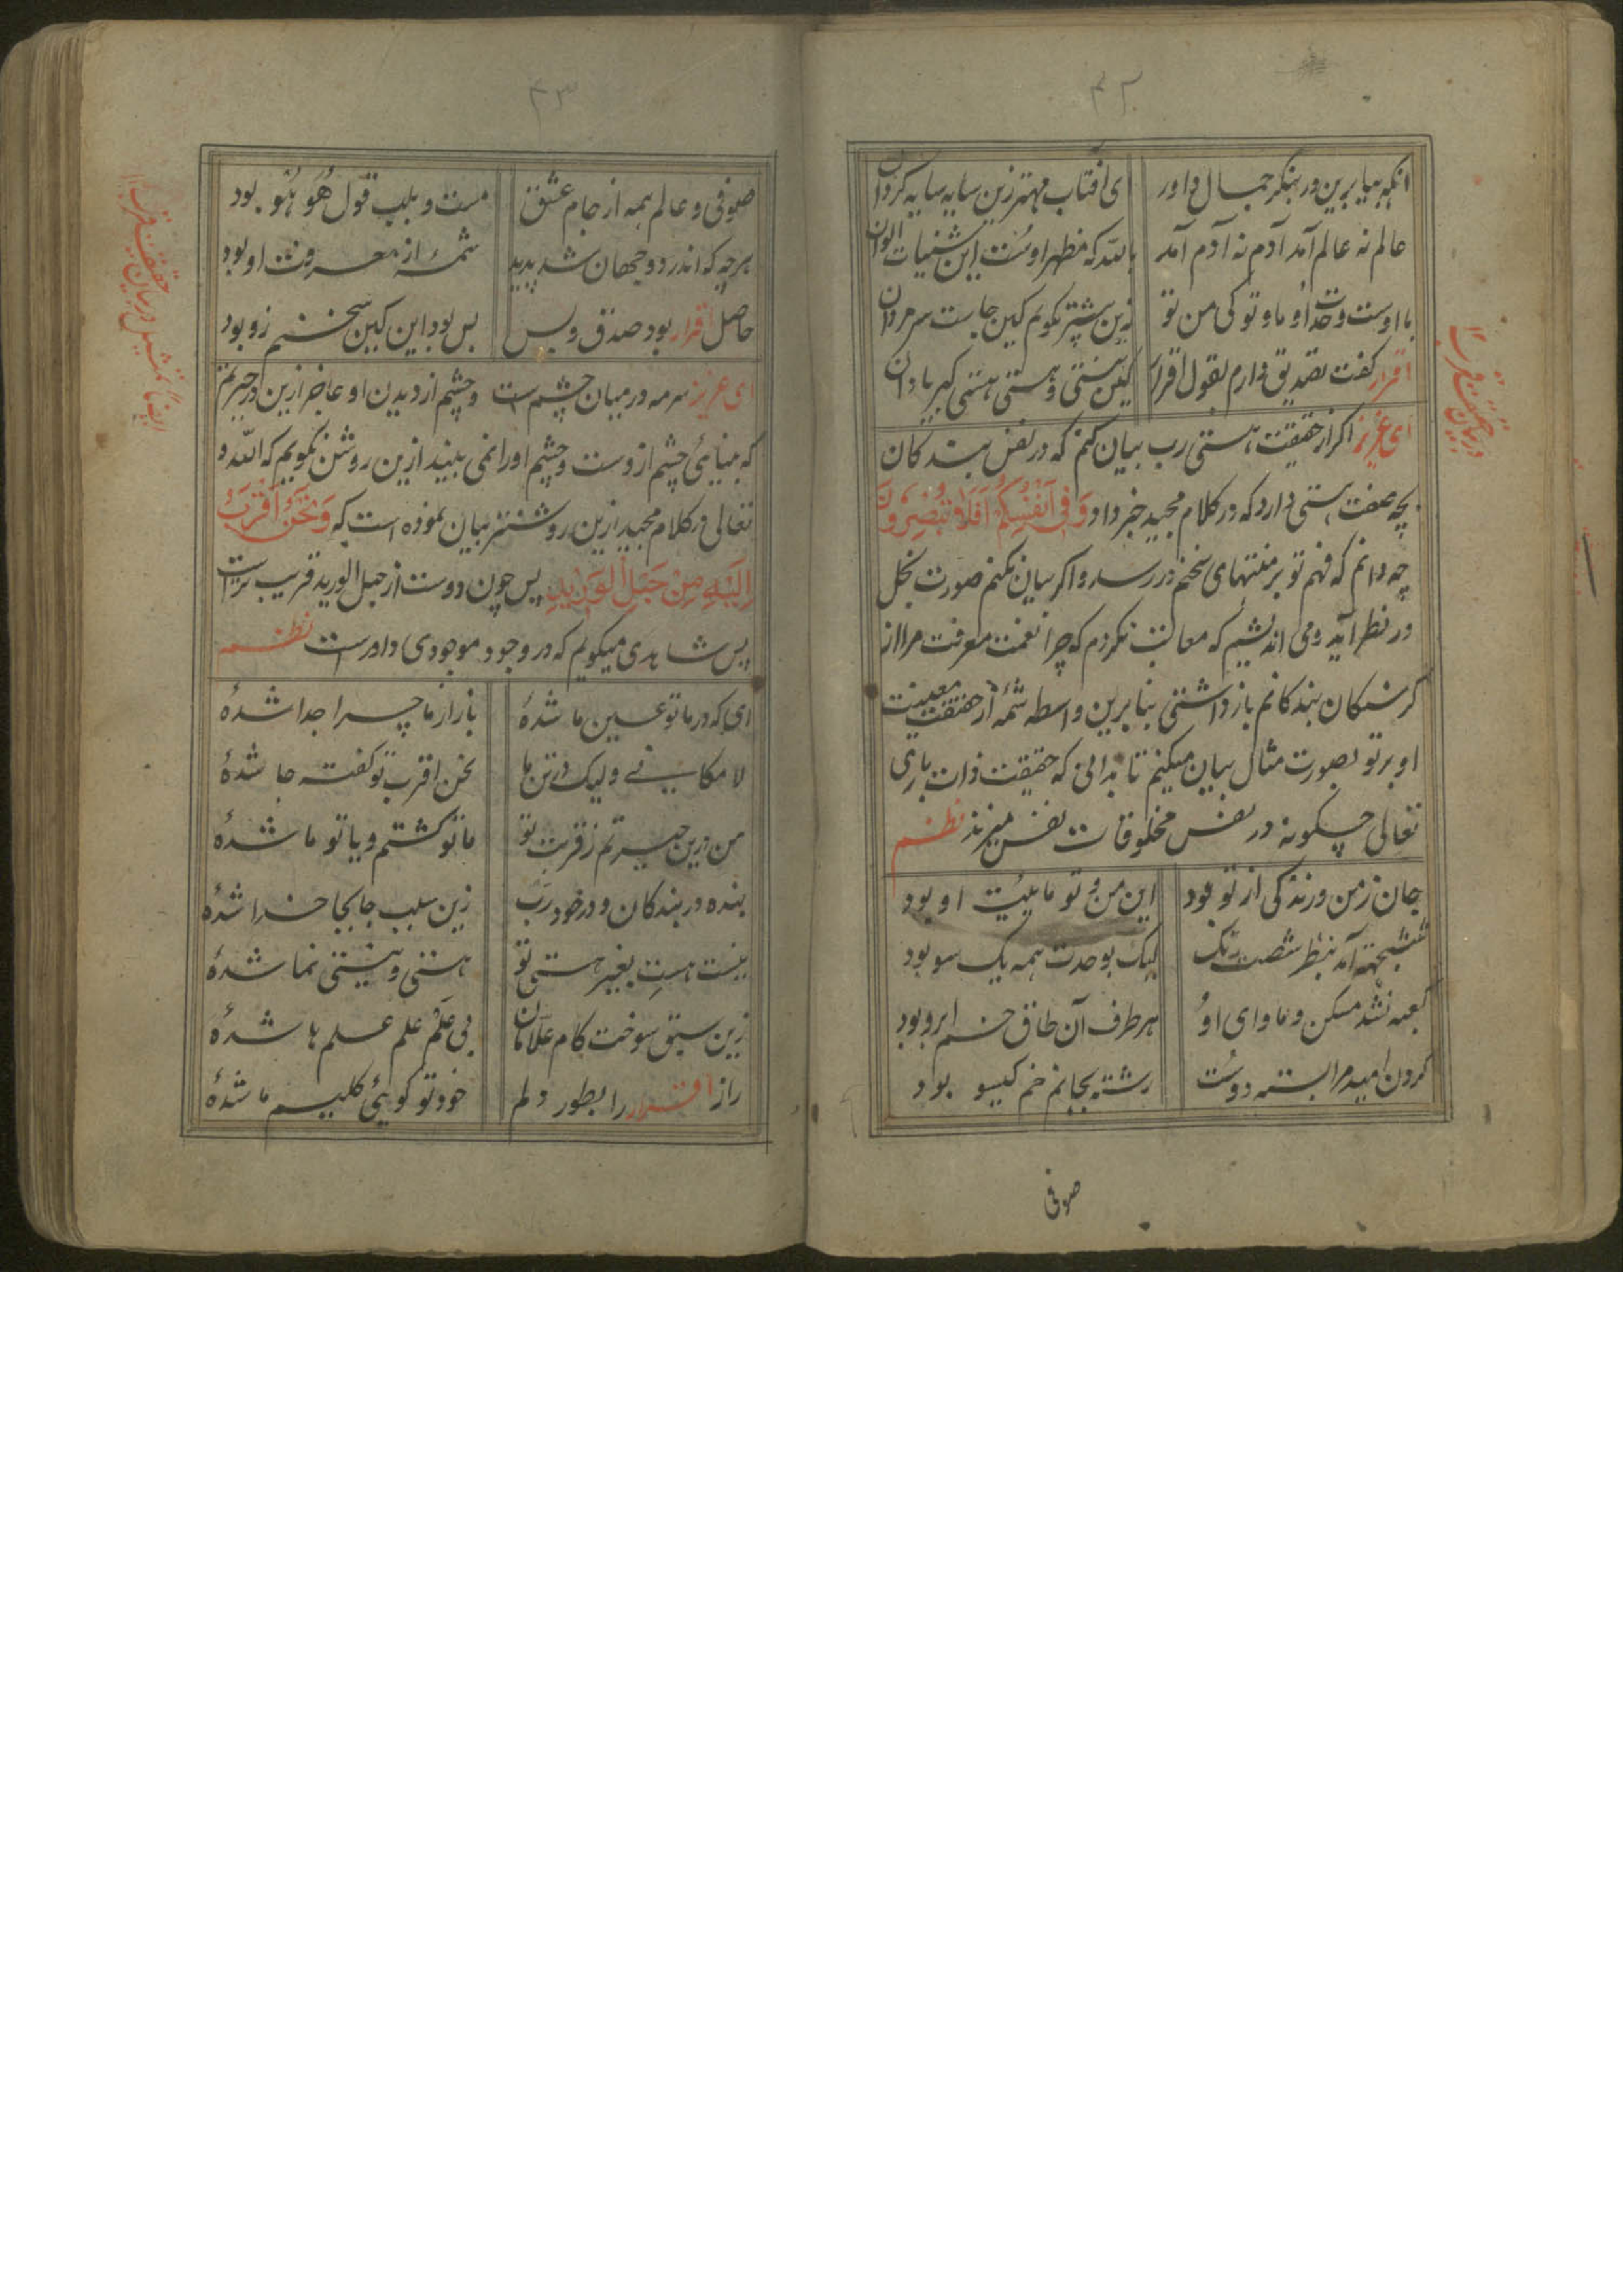 ۴۲
انکه بیا برین در بنکر جمال داور
ای افتاب مهتر زین سایه سایه کردان
عالم نه عالم آمد آدم نه آدم آمد
بالله که مظهر اوست این شنیات الوان
با اوست وحدت او ما و تو کی من تو
زین پیشتر نکویم کین جاست سر مردان
اقرار کفت تصدیق دارم بقول اقرار
کین نیستی و هستی هستی کبریا دان
ای عزیز اکر از حقیقت هستی رب بیان کنم که در نفس بندکان
بچه صفت هستی دارد که در کلام مجید خبر داد وَفِی اَنْفُسِکُمْ اَفَلَا تُبْصِرُونَ
چه دانم که فهم تو بر منتهای سخنم در رسد و اکر بیان نکنم صورت بخل
در نظر آید و می اندیشم که معاتب نکردم که چرا نعمت معرفت مرا از
کرسنکان بندکانم باز داشتی بنابرین واسطه شمهٔ از حقیقت معیت
او بر تو بصورت مثال بیان میکنم تا بدانی که حقیقت ذات باری
تعالی چکونه در نفس مخلوقات نفس میزند نظم
جان ز من و زندکی از تو بود
این من و تو ماهیت او بود
ششجهته آمد بنظر شصت رنک
لیک بوحدت همه یک سو بود
کعبه نشد مسکن و ماوای او
هر طرف آن طاق خم ابرو بود
کردن امید مرا بسته دوست
رشته بجانم خم کیسو بود
صوفی
۴۳
صوفی و عالم همه از جام عشق
مست و بلب قول هُو هُو بود
هرچه که اندر دو جهان شد پدید
شمهٔ از معرفت او بود
حاصل اقرار بود صدق و بس
بس بود این کین سخنم زو بود
ای عزیز سرمه در میان چشم است و چشم از دیدن او عاجز ازین در حیرتم
که بینائی چشم ازوست و چشم او را نمی بیند ازین روشن نکویم که الله و
تعالی در کلام مجید ازین روشنتر بیان نموده است که وَنَحْنُ اَقْرَبُ
اِلَیْهِ مِنْ حَبْلِ الْوَرِیْدِ پس چون دوست از حبل الورید قریب تر است
پس شاهدی میکویم که در وجود موجودی داور است نظم
ای که در ما تو عین ما شدهٔ
باز از ما چرا جدا شدهٔ
لا مکانی ولیک در تن ما
نحن اقرب تو کفته جا شدهٔ
من درین حیرتم ز قربت تو
ما تو کشتم و یا تو ما شدهٔ
بنده در بندکان و در خود رب
زین سبب جابجا خدا شدهٔ
نیست هست بغیر هستی تو
هستی و نیستی نما شدهٔ
زین سبق سوخت کام علامان
بی علم علم علمها شدهٔ
راز اقرار را بطور دلم
خود تو کوئی کلیم ما شدهٔ